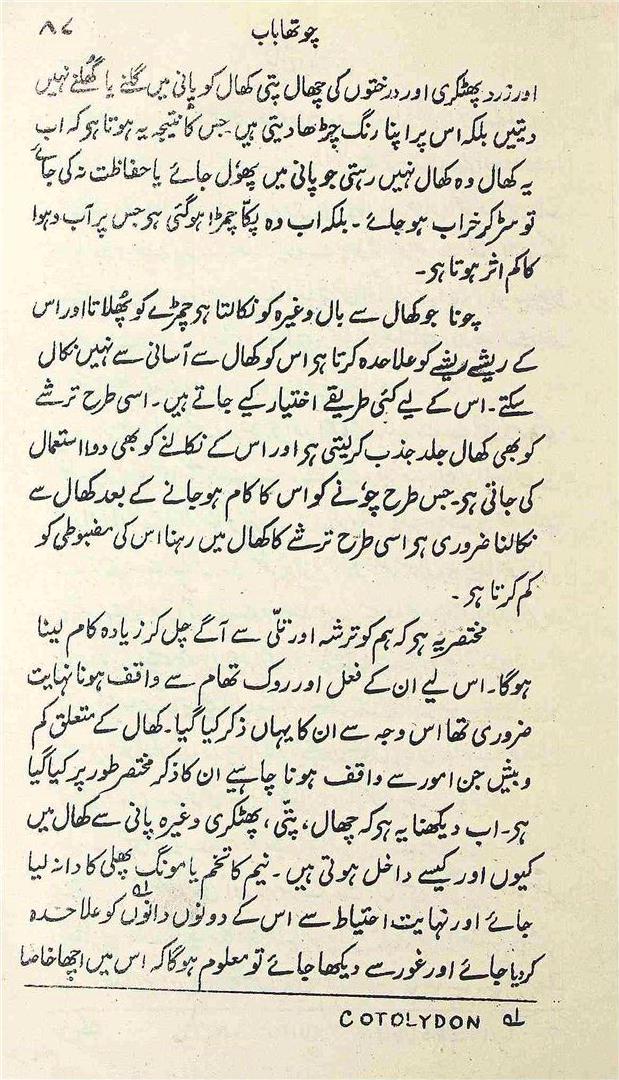 چوتھا باب ۸۷
اور زرد پھٹکری اور درختوں کی چھال پتی کھال کو پانی میں گلنے یا گھُلنے نہیں
دیتیں بلکہ اس پر اپنا رنگ چڑھا دیتی ہیں جس کا نتیجہ یہ ہوتا ہو کہ اب
یہ کھال وہ کھال نہیں رہتی جو پانی میں پھوٗل جائے یا حفاظت نہ کی جائے
تو سڑ کر خراب ہو جائے۔ بلکہ اب وہ پکّا چمڑا ہو گئی ہو جس پر آب و ہوا
کا کم اثر ہوتا ہو۔
چونا جو کھال سے بال وغیرہ کو نکالتا ہو چمڑے کو پھُلاتا اور اس
کے ریشے ریشے کو علاحدہ کرتا ہو اس کو کھال سے آسانی سے نہیں نکال
سکتے۔ اس کے لیے کئی طریقے اختیار کیے جاتے ہیں۔ اسی طرح ترشے
کو بھی کھال جلد جذب کر لیتی ہو اور اس کے نکالنے کو بھی دوا استعمال
کی جاتی ہو۔ جس طرح چوٗنے کو اس کا کام ہو جانے کے بعد کھال سے
نکالنا ضروری ہو اسی طرح ترشے کا کھال میں رہنا اس کی مضبوطی کو
کم کرتا ہو۔
مختصر یہ ہو کہ ہم کو ترشہ اور تلّی سے آگے چل کر زیادہ کام لینا
ہوگا۔ اس لیے ان کے فعل اور روک تھام سے واقف ہونا نہایت
ضروری تھا اس وجہ سے ان کا یہاں ذکر کیا گیا۔ کھال کے متعلق کم
و بیش جن امور سے واقف ہونا چاہیے ان کا ذکر مختصر طور پر کیا گیا
ہو۔ اب دیکھنا یہ ہو کہ چھال، پتّی، پھٹکری وغیرہ پانی سے کھال میں
کیوں اور کیسے داخل ہوتی ہیں۔ نیم کا تخم یا مونگ پھلی کا دانہ لیا
جائے اور نہایت احتیاط سے اس کے دونوں دانوں <sup>۱</sup> کو علاحدہ
کر دیا جائے اور غور سے دیکھا جائے تو معلوم ہوگا کہ اس میں اچھا خاصا
۱ COTOLYDON